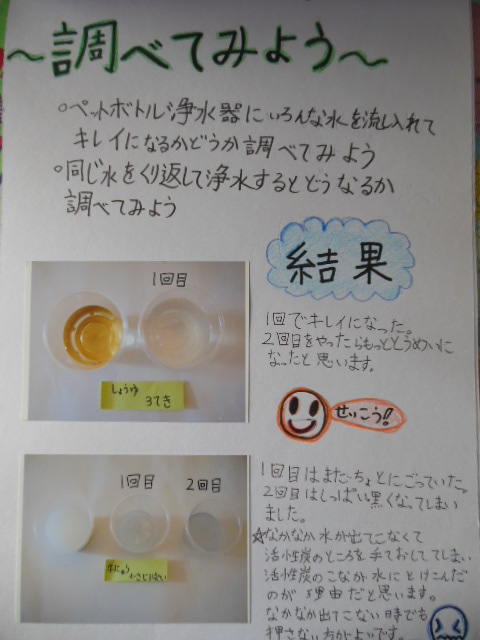 〜調べてみよう〜
○ペットボトル浄水器にいろんな水を流し入れて
キレイになるかどうか調べてみよう
○同じ水をくり返して浄水するとどうなるか
調べてみよう
結果
1回目
しょうゆ
3てき
1回でキレイになった。
2回目をやったらもっととうめいに
なったと思います。
せいこう!!
1回目
2回目
牛にゅう
1回目はまだちょっとにごっていた。
2回目はしっぱい黒くなってしまい
ました。
☆なかなか水が出てこなくて
活性炭のところを手でおしてしまい
活性炭のこなが水にとけこんだ
のが理由だと思います。
なかなか出てこない時でも
押さない方がよいです